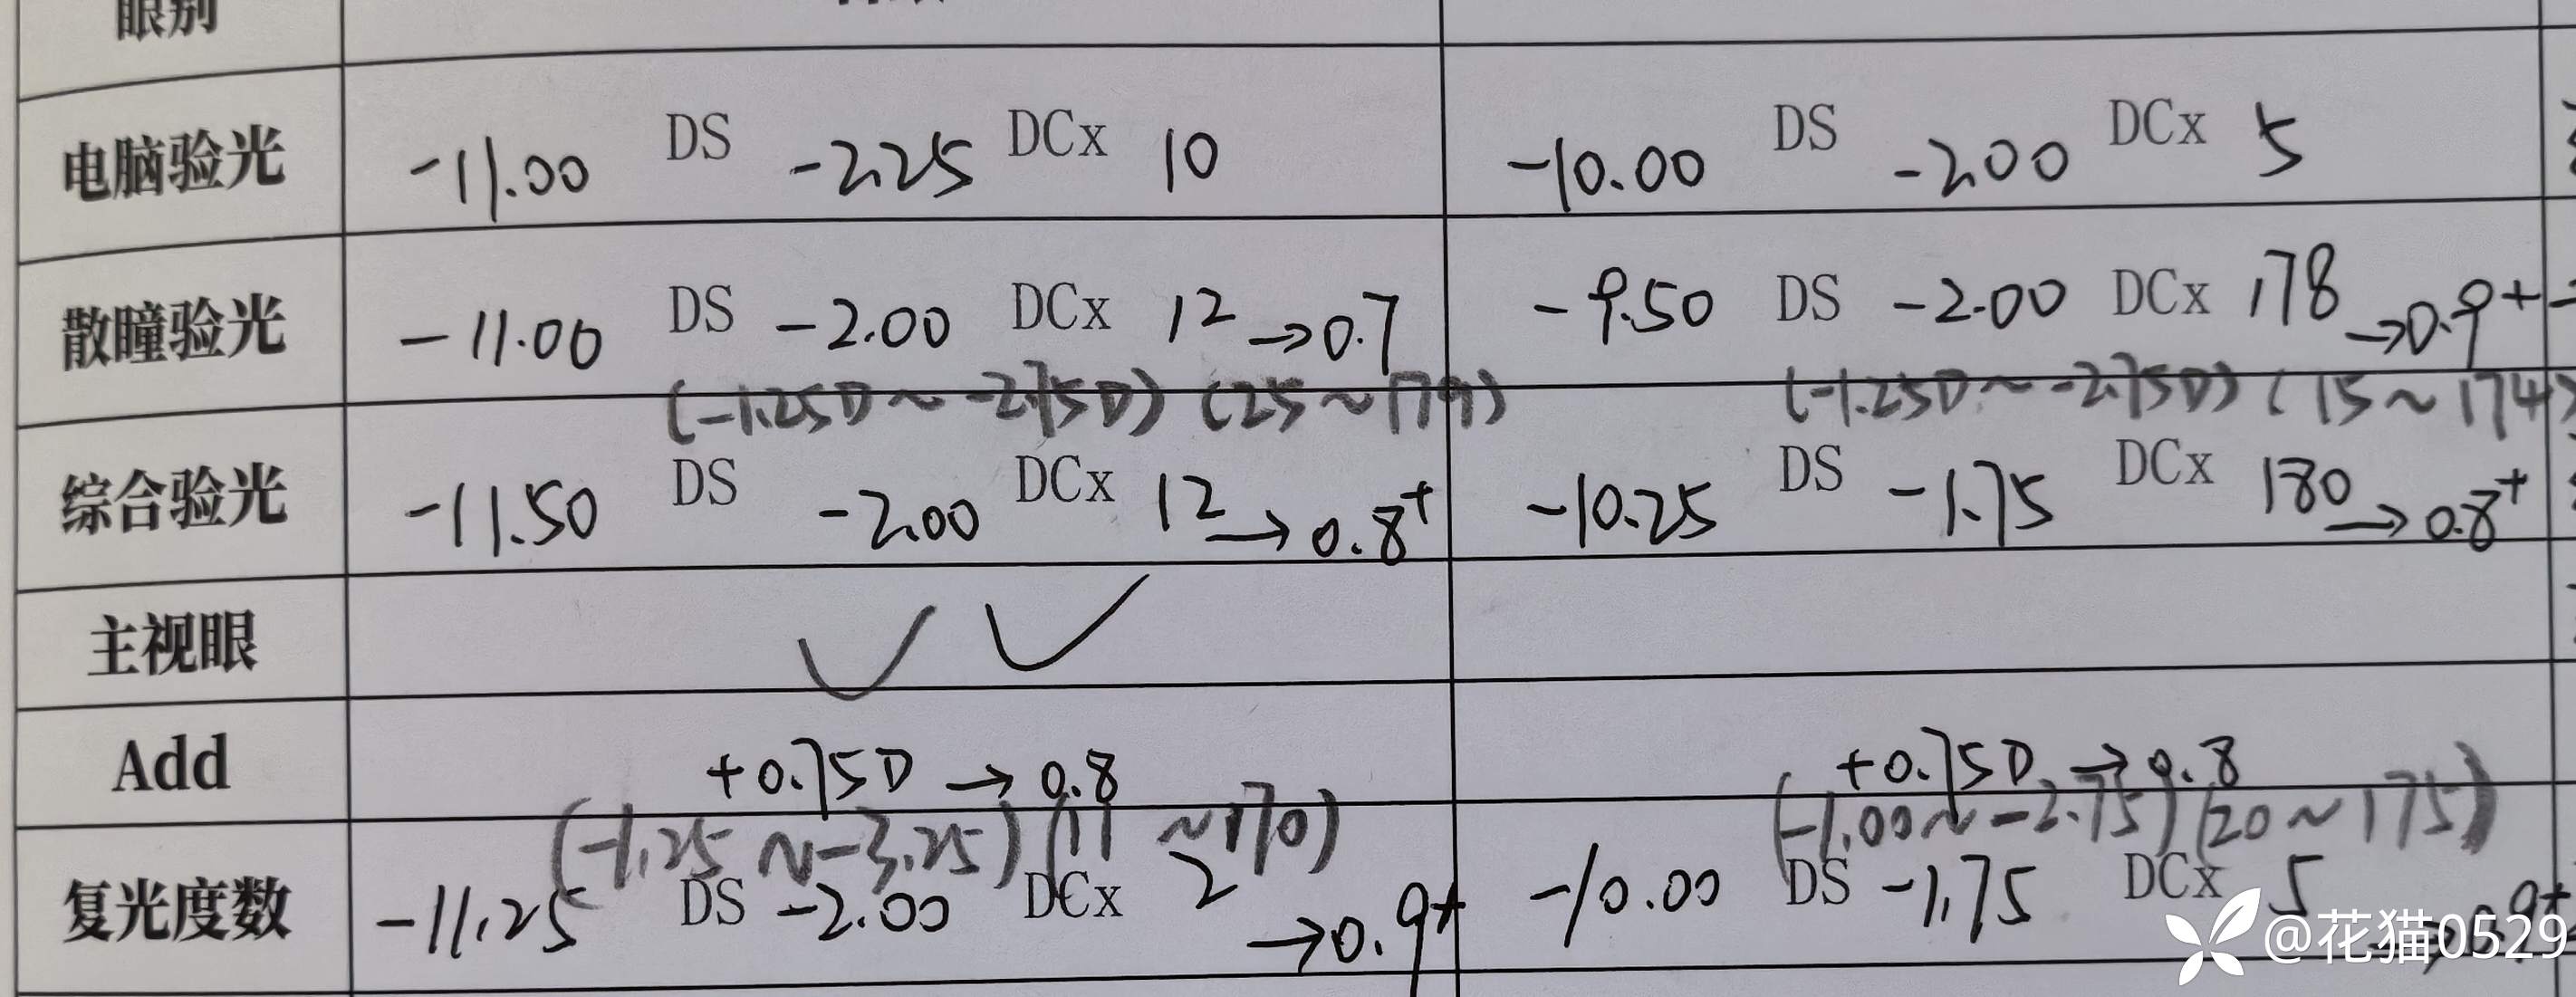 眼别
电脑验光 -11.00 DS -2.25 DCx 10 -10.00 DS -2.00 DCx 5
散瞳验光 -11.00 DS -2.00 DCx 12 →0.7 -9.50 DS -2.00 DCx 178 →0.9+
(-1.25D~-2.75D) (25~179) (-1.25D~-2.75D) (15~174)
综合验光 -11.50 DS -2.00 DCx 12 →0.8+ -10.25 DS -1.75 DCx 180 →0.8+
主视眼 ✓ ✓
Add +0.75D →0.8 +0.75D →0.8
(-1.25~-3.25) (11~170) (-1.00~-2.75) (20~175)
复光度数 -11.25 DS -2.00 DCx 2 →0.9+ -10.00 DS -1.75 DCx 5
@花猫0529